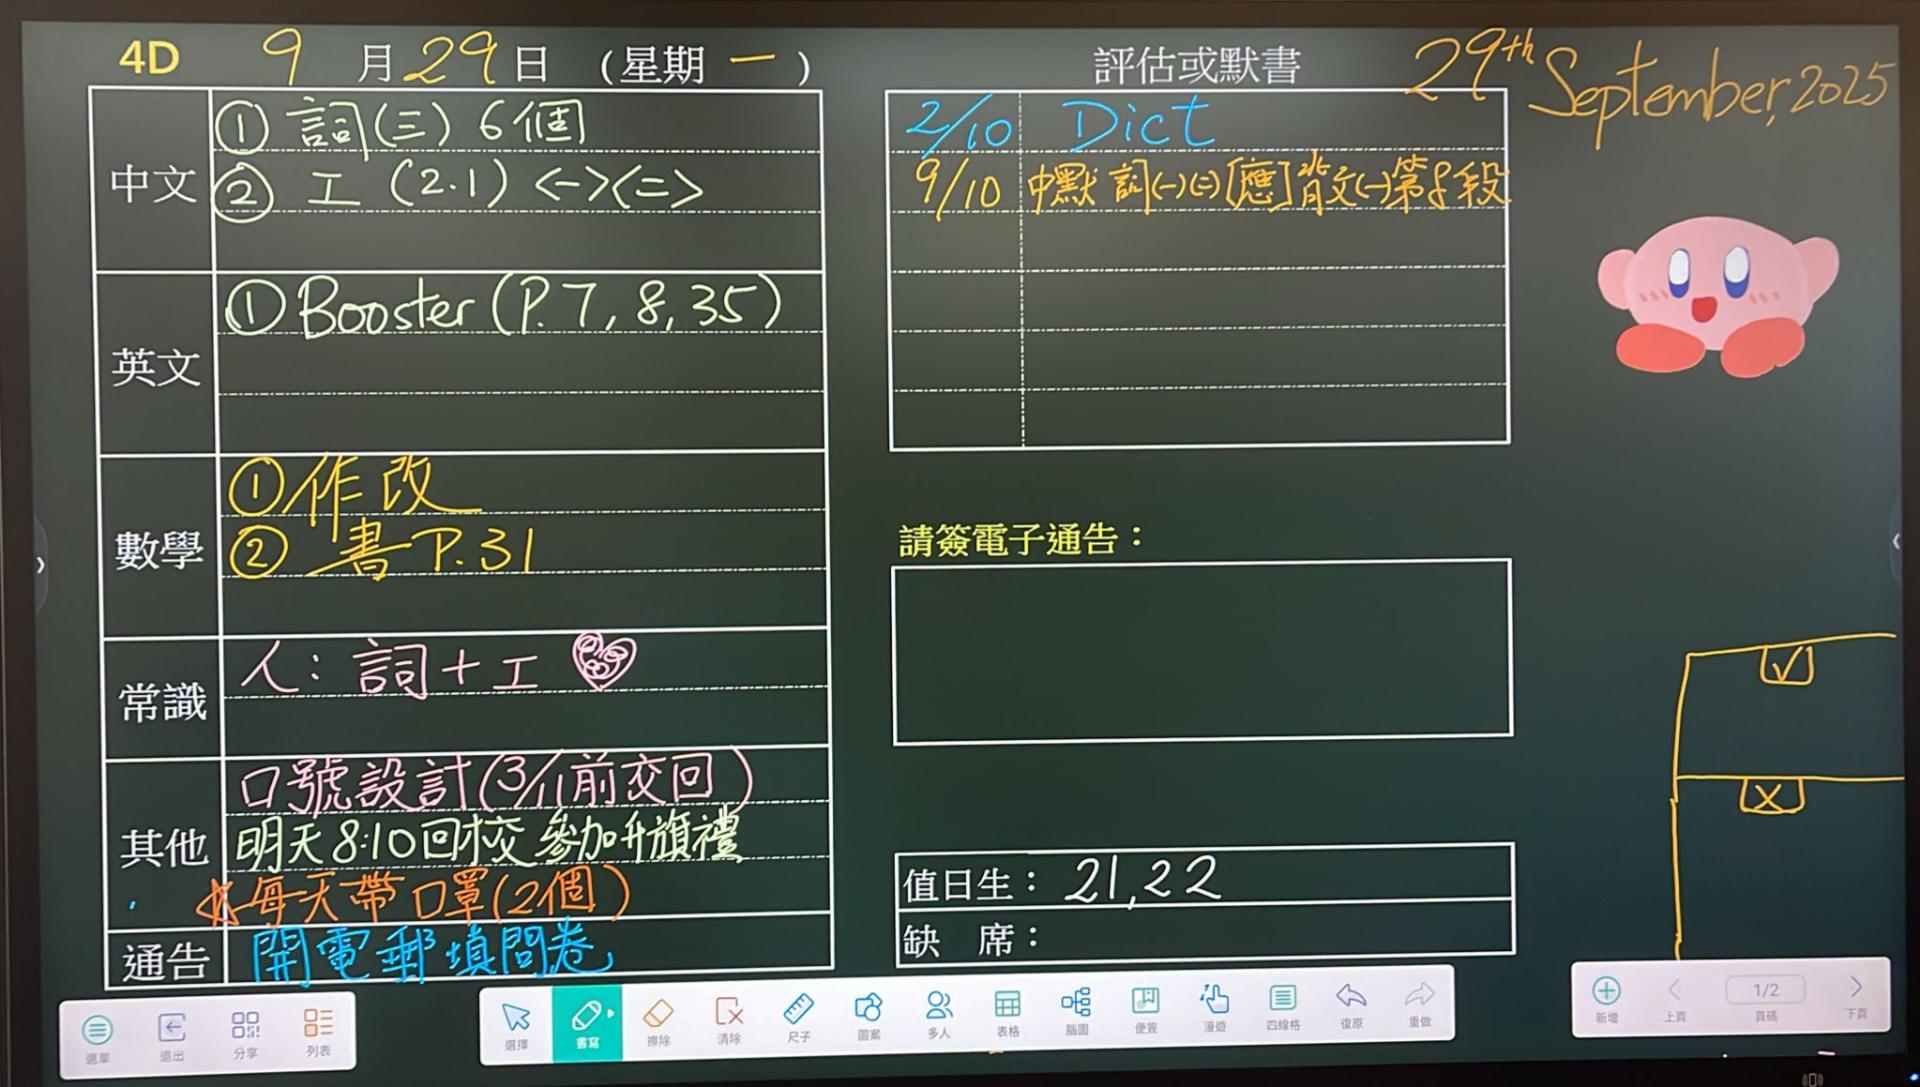 4D 9月29日 (星期一)
中文
① 詞(三) 6個
② 工 (2.1) <一><二>
英文
① Booster (P. 7, 8, 35)
數學
① 作改
② 書 P.31
常識
人: 詞+工
其他
口號設計(3/11前交回)
明天8:10回校參加升旗禮
每天帶口罩(2個)
通告
開電郵填問卷
評估或默書
29th September, 2025
2/10 Dict
9/10 中默 詞(一)(二)[應]背文(一)第8段
請簽電子通告：
值日生： 21, 22
缺 席：
選單
退出
分享
列表
選擇
書寫
擦除
清除
尺子
圖案
多人
表格
腦圖
便簽
漫遊
四線格
復原
重做
新增
上頁
1/2
頁碼
下頁